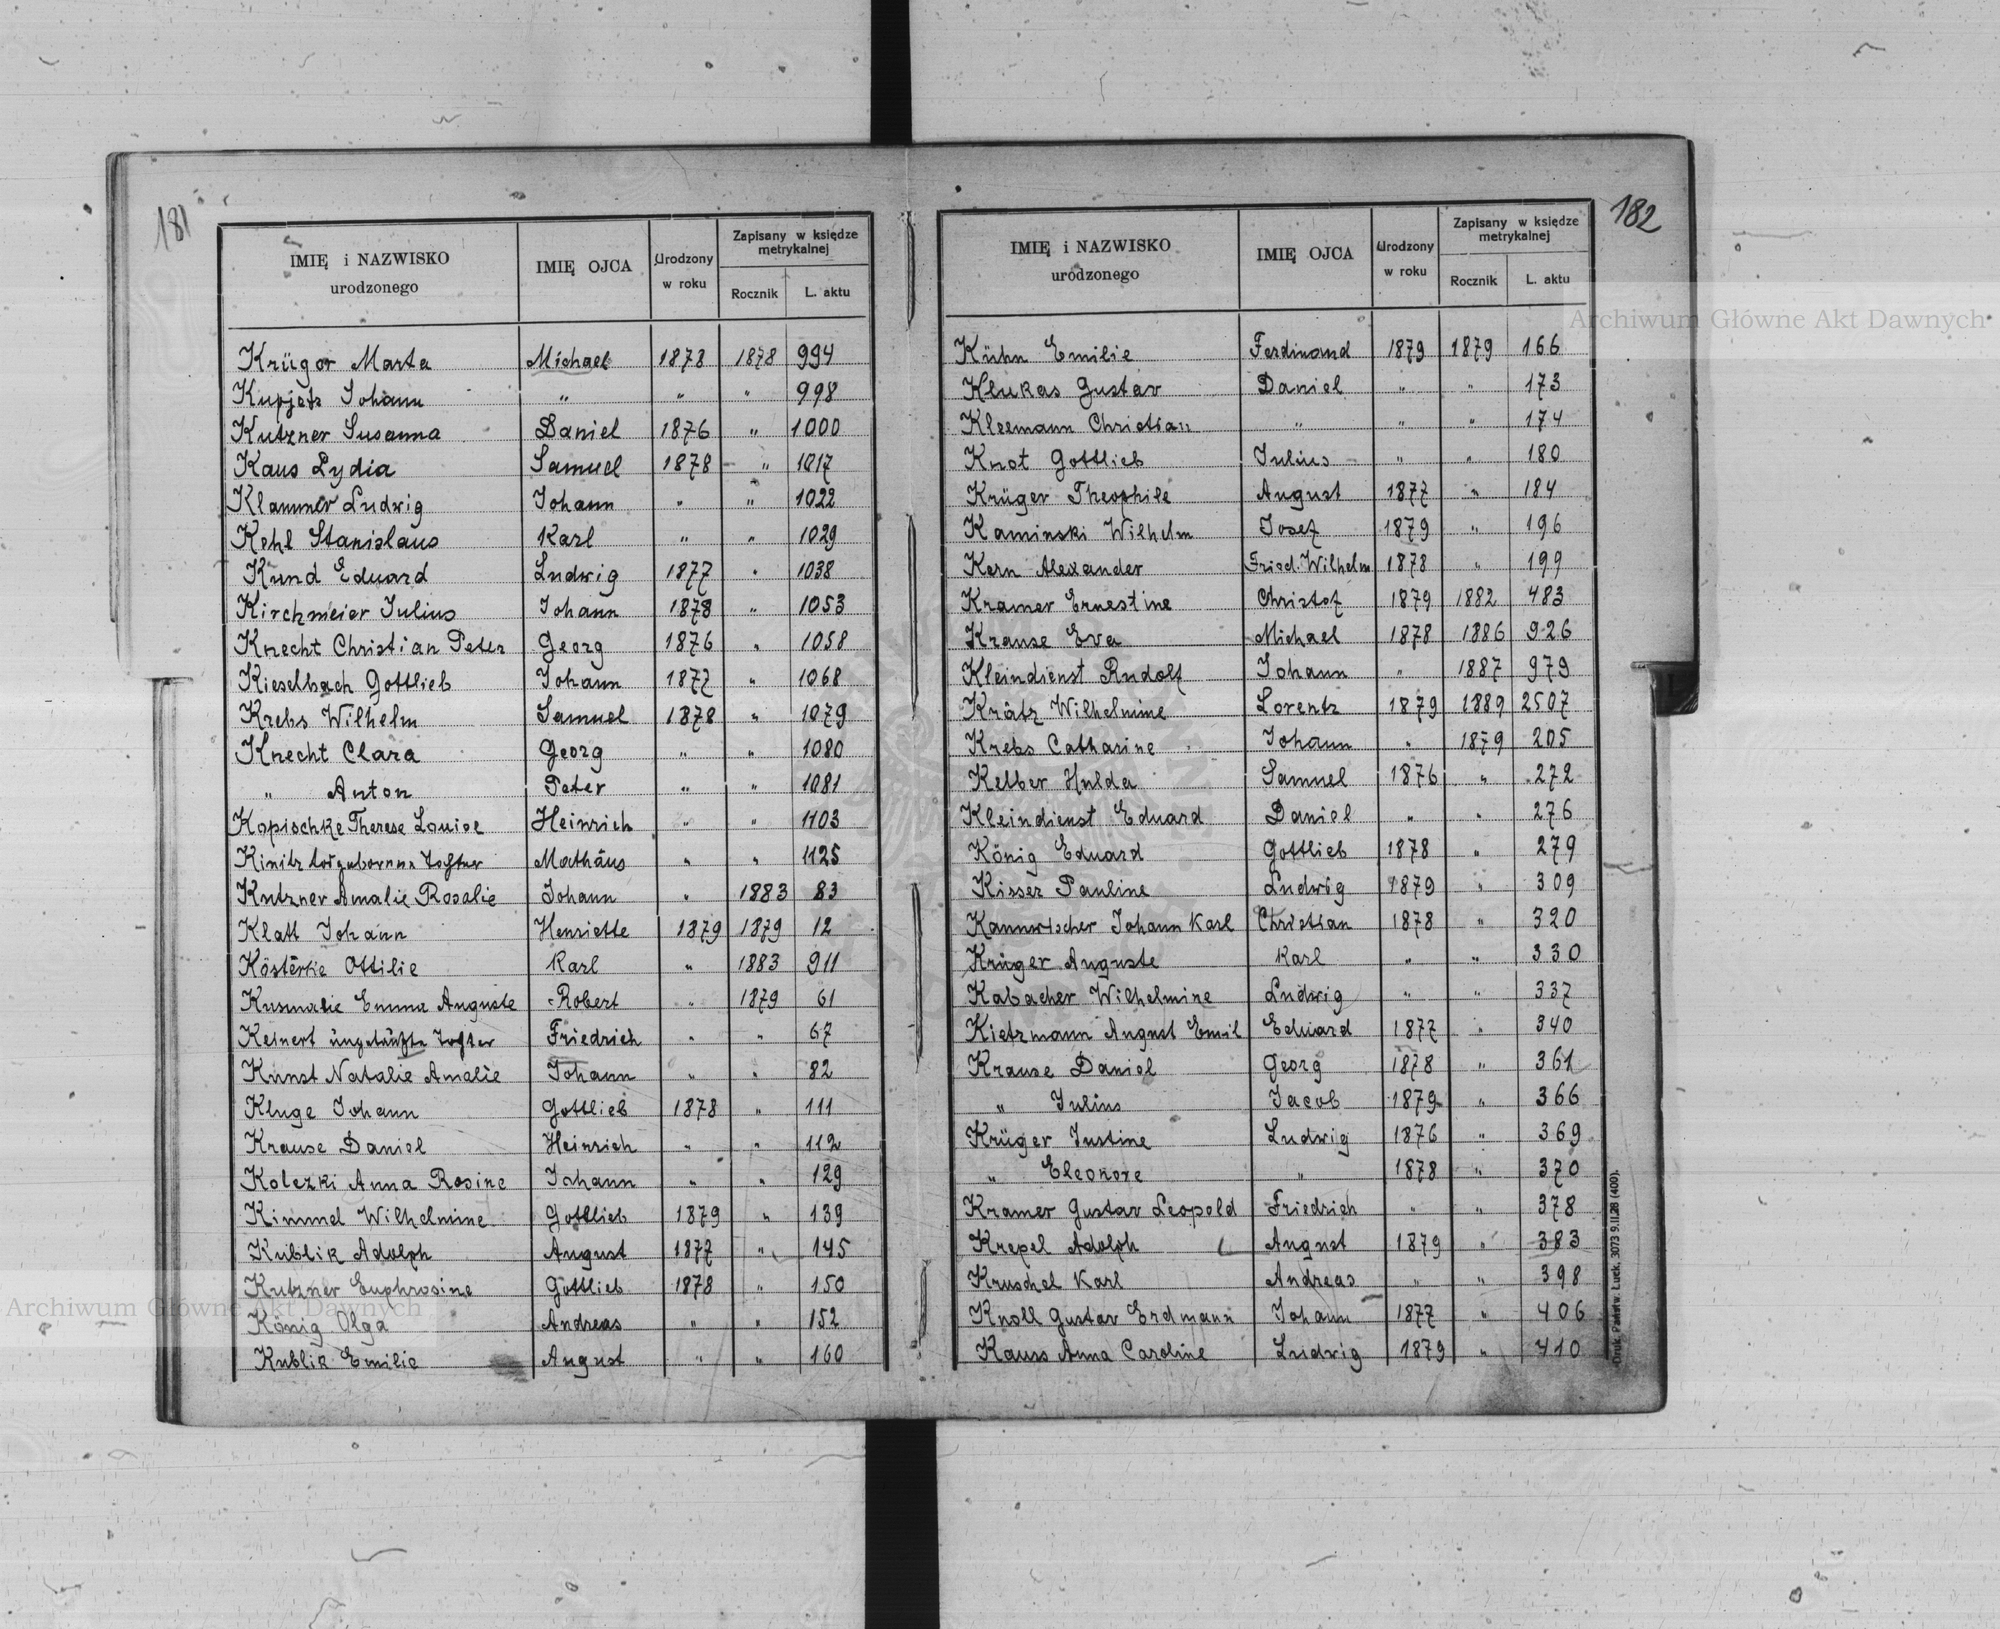 181
IMIĘ i NAZWISKO urodzonego IMIĘ OJCA Urodzony w roku Zapisany w księdze metrykalnej Rocznik L. aktu
Krüger Marta Michael 1878 1878 994
Kupjets Johann " " " 998
Kutzner Susanna Daniel 1876 " 1000
Kaus Lydia Samuel 1878 " 1017
Klammer Ludwig Johann " " 1022
Kehl Stanislaus Karl " " 1029
Kund Eduard Ludwig 1877 " 1038
Kirchmeier Julius Johann 1878 " 1053
Knecht Christian Peter Georg 1876 " 1058
Kieselbach Gottlieb Johann 1877 " 1068
Krebs Wilhelm Samuel 1878 " 1079
Knecht Clara Georg " " 1080
" Anton Peter " " 1081
Kopischke Therese Louise Heinrich " " 1103
Kinitz totgeborene Tochter Mathäus " " 1125
Kutzner Amalie Rosalie Johann " 1883 83
Klatt Johann Henriette 1879 1879 12
Kösterke Ottilie Karl " 1883 911
Kusmatie Emma Auguste Robert " 1879 61
Keinert ungetaufte Tochter Friedrich " " 67
Kunst Natalie Amalie Johann " " 82
Kluge Johann Gottlieb 1878 " 111
Krause Daniel Heinrich " " 112
Kolezki Anna Rosine Johann " " 129
Kimmel Wilhelmine Gottlieb 1879 " 139
Kublik Adolph August 1877 " 145
Kutzner Euphrosine Gottlieb 1878 " 150
König Olga Andreas " " 152
Kublik Emilie August " " 160
182
IMIĘ i NAZWISKO urodzonego IMIĘ OJCA Urodzony w roku Zapisany w księdze metrykalnej Rocznik L. aktu
Kühn Emilie Ferdinand 1879 1879 166
Klukas Gustav Daniel " " 173
Kleemann Christian " " " 174
Knot Gottlieb Julius " " 180
Krüger Theophile August 1877 " 184
Kaminski Wilhelm Josef 1879 " 196
Kern Alexander Fried. Wilhelm 1878 " 199
Kramer Ernestine Christof 1879 1882 483
Krause Eva Michael 1878 1886 926
Kleindienst Rudolf Johann " 1887 979
Krätz Wilhelmine Lorentz 1879 1889 2507
Krebs Catharine Johann " 1879 205
Kelber Hulda Samuel 1876 " 272
Kleindienst Eduard Daniel " " 276
König Eduard Gottlieb 1878 " 279
Kisser Pauline Ludwig 1879 " 309
Kannwischer Johann Karl Christian 1878 " 320
Krüger Auguste Karl " " 330
Kabacher Wilhelmine Ludwig " " 337
Kietzmann August Emil Eduard 1877 " 340
Krause Daniel Georg 1878 " 361
" Julius Jacob 1879 " 366
Krüger Justine Ludwig 1876 " 369
" Eleonore " 1878 " 370
Kramer Gustav Leopold Friedrich " " 378
Krepel Adolph August 1879 " 383
Kruschel Karl Andreas " " 398
Knoll Gustav Erdmann Johann 1877 " 406
Kauss Anna Caroline Ludwig 1879 " 410
Druk. Państw. Łuck. 3073 9.II.28 (400).
Archiwum Główne Akt Dawnych
Archiwum Główne Akt Dawnych